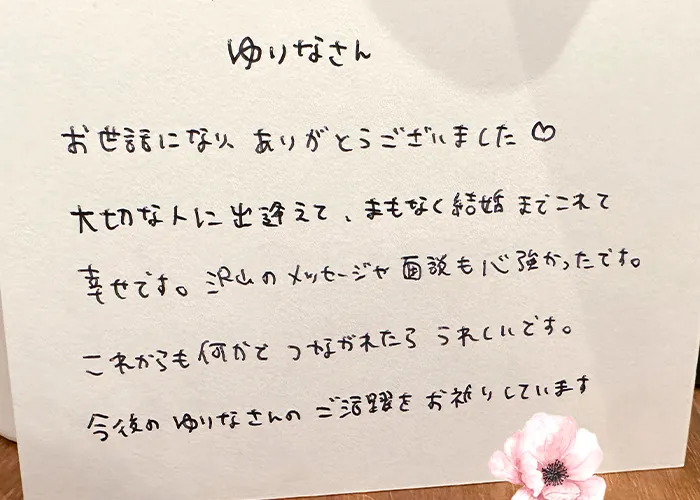 ゆりなさん
お世話になり、ありがとうございました♡
大切な人に出逢えて、まもなく結婚までこれて
幸せです。沢山のメッセージや面談も心強かったです。
これからも何かとつながれたらうれしいです。
今後のゆりなさんのご活躍をお祈りしています